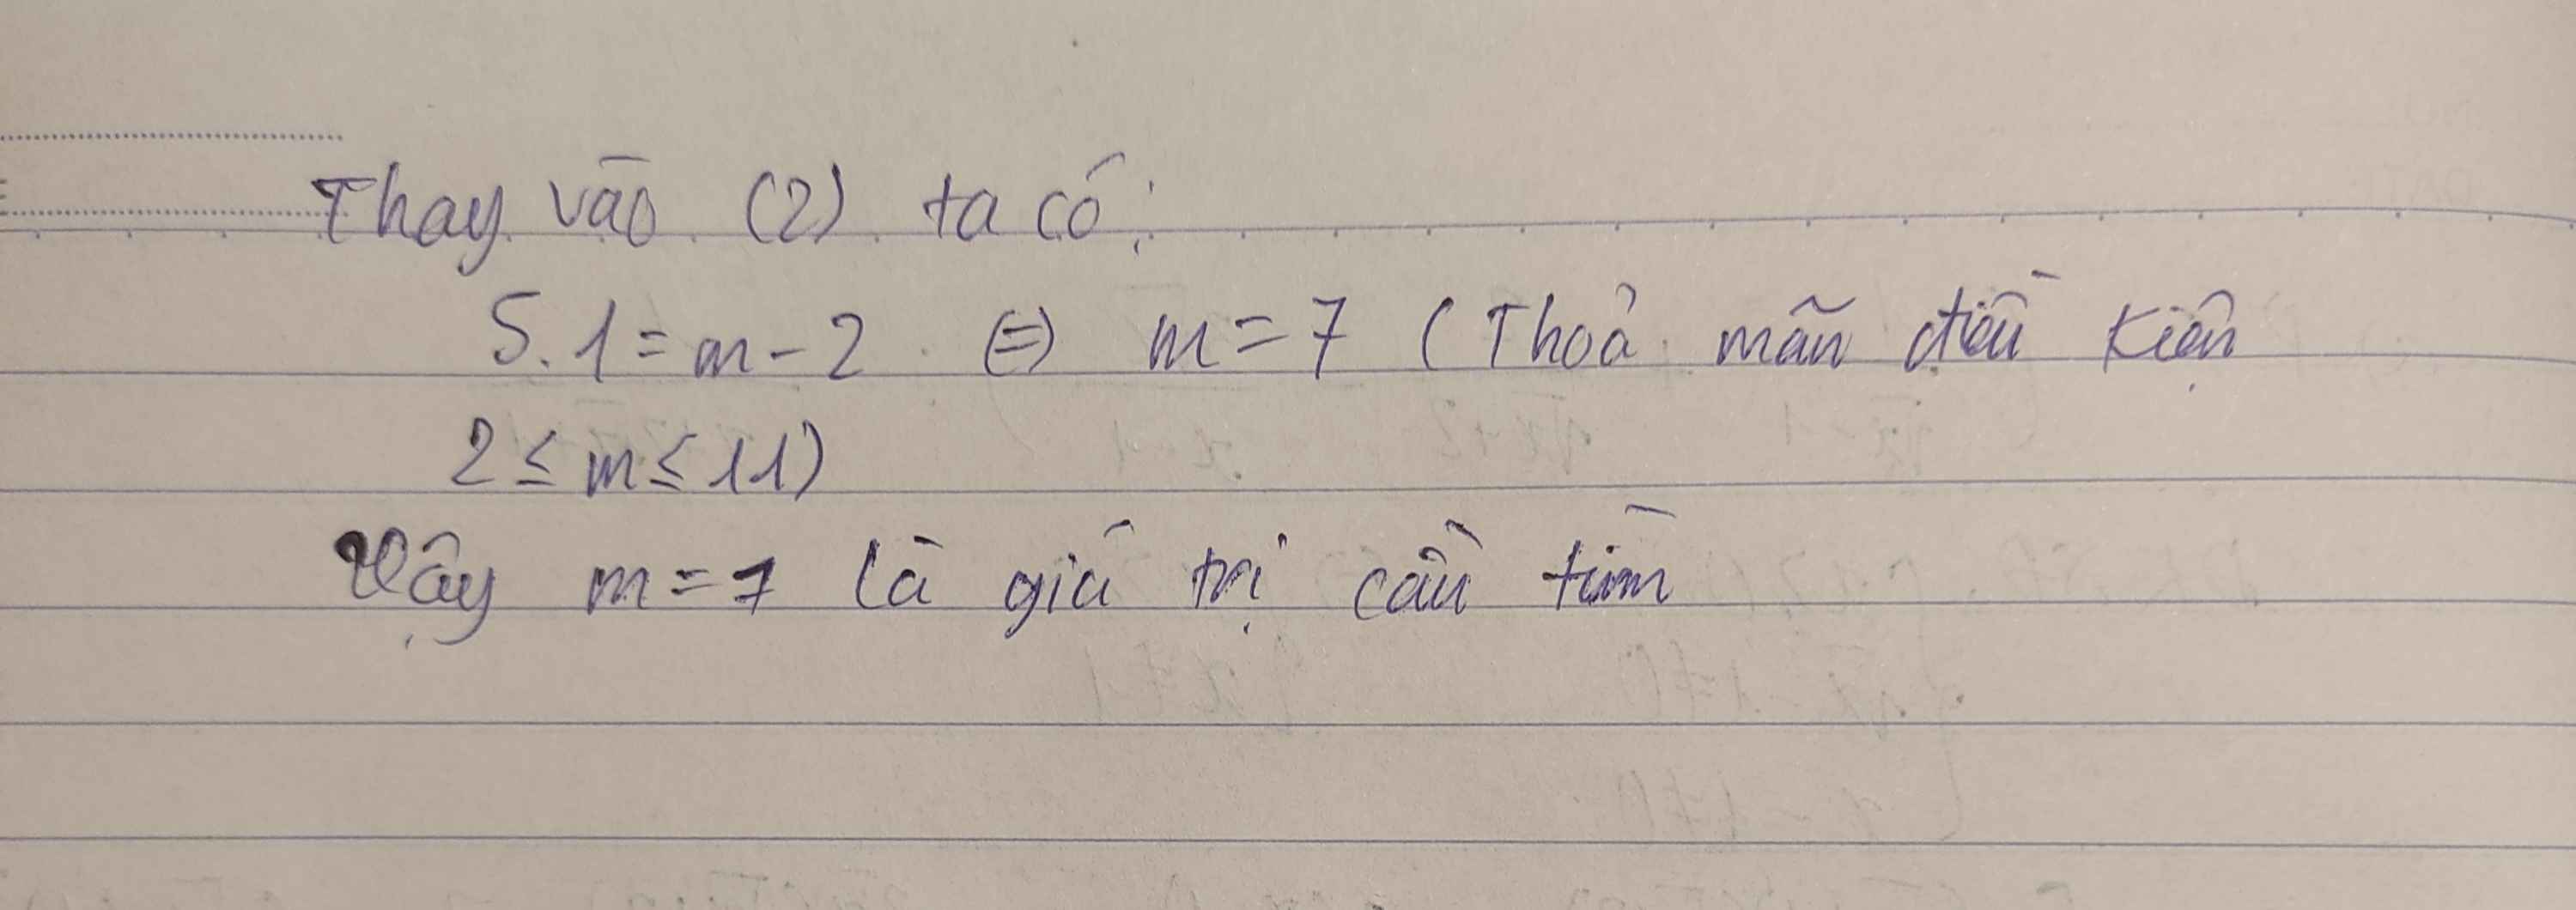 Thay vào (2) ta có:
5.1 = m - 2 ⇔ m = 7 (Thoả mãn điều kiện
2 ≤ m ≤ 11)
Vậy m = 7 là giá trị cần tìm